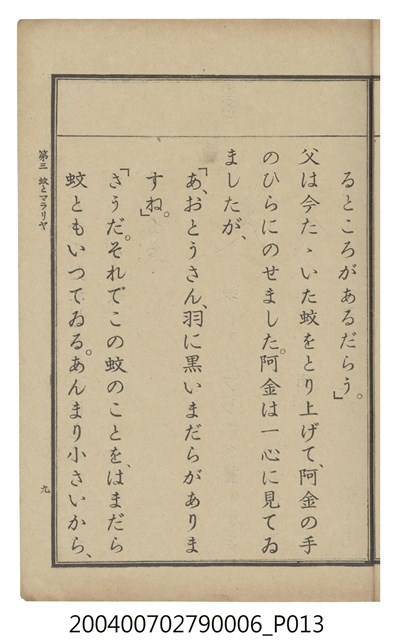 るところがあるだらう。」
父は今たゝいた蚊をとり上げて、阿金の手
のひらにのせました。阿金は一心に見てゐ
ましたが、
「あ、おとうさん、羽に黒いまだらがありま
すね。」
「さうだ。それでこの蚊のことを、はまだら
蚊ともいつてゐる。あんまり小さいから、
第三 蚊とマラリヤ
九
200400702790006_P013